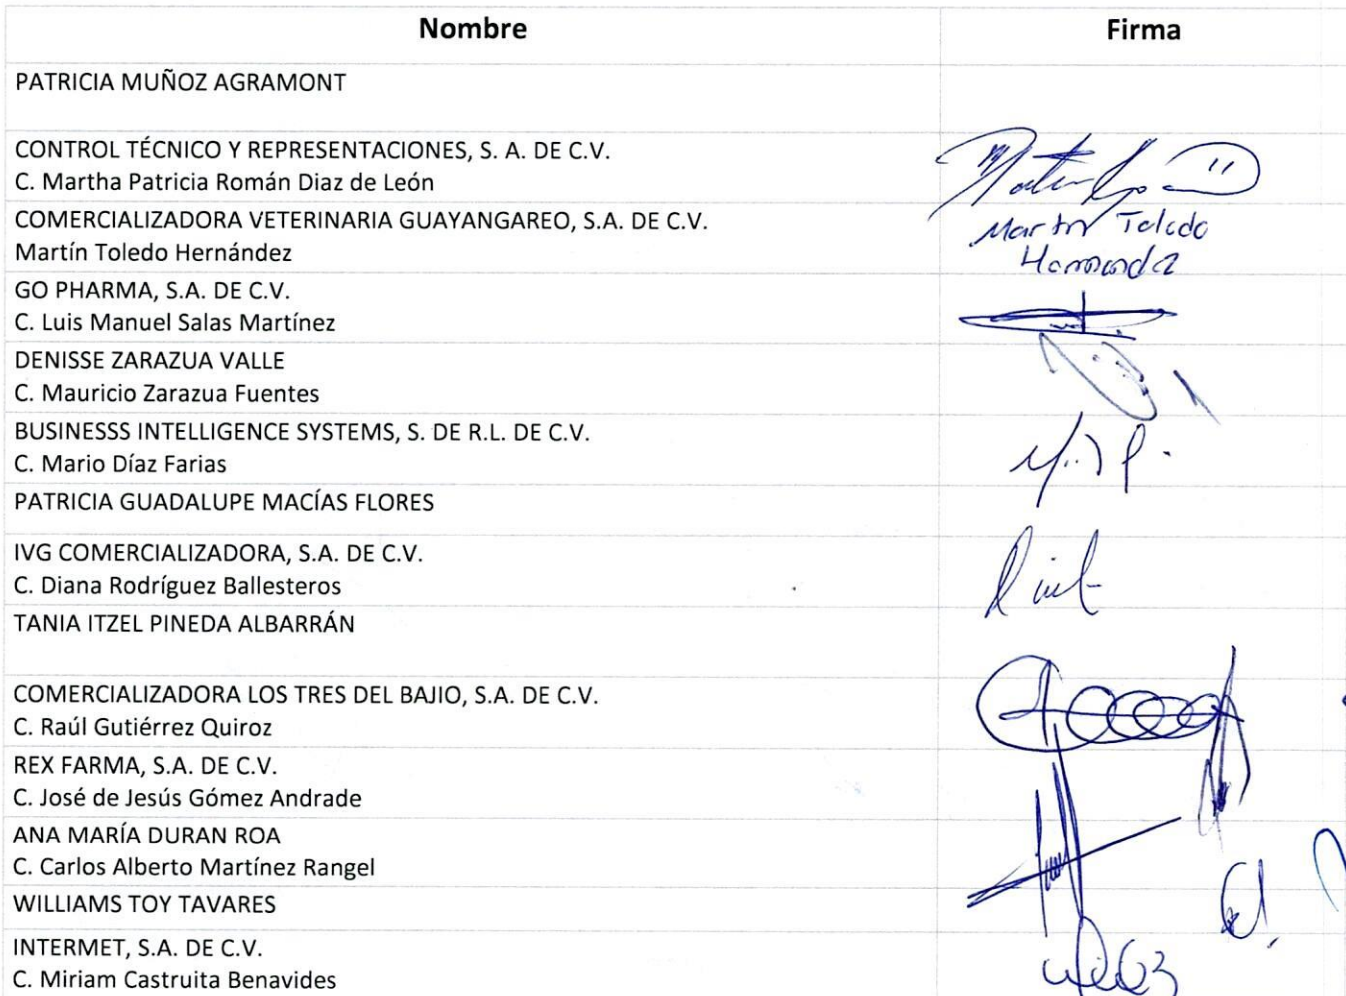 Nombre
Firma
PATRICIA MUÑOZ AGRAMONT
CONTROL TÉCNICO Y REPRESENTACIONES, S. A. DE C.V.
C. Martha Patricia Román Diaz de León
COMERCIALIZADORA VETERINARIA GUAYANGAREO, S.A. DE C.V.
Martin Toledo
Martín Toledo Hernández
GO PHARMA, S.A. DE C.V.
C. Luis Manuel Salas Martínez
DENISSE ZARAZUA VALLE
C. Mauricio Zarazua Fuentes
BUSINESSS INTELLIGENCE SYSTEMS, S. DE R.L. DE C.V.
C. Mario Díaz Farias
PATRICIA GUADALUPE MACÍAS FLORES
IVG COMERCIALIZADORA, S.A. DE C.V.
C. Diana Rodríguez Ballesteros
TANIA ITZEL PINEDA ALBARRÁN
COMERCIALIZADORA LOS TRES DEL BAJIO, S.A. DE C.V.
C. Raúl Gutiérrez Quiroz
REX FARMA, S.A. DE C.V.
C. José de Jesús Gómez Andrade
ANA MARÍA DURAN ROA
C. Carlos Alberto Martínez Rangel
WILLIAMS TOY TAVARES
INTERMET, S.A. DE C.V.
C. Miriam Castruita Benavides